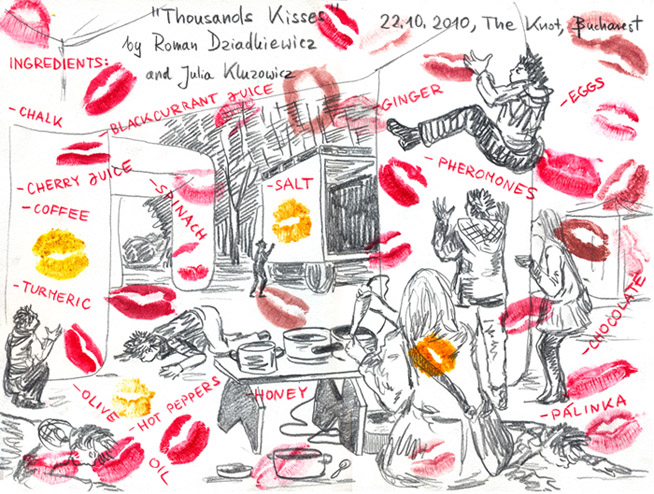 "Thousands Kisses"
by Roman Dziadkiewicz
and Julia Kluzowicz
22.10. 2010, The Knot, Bucharest
INGREDIENTS:
-CHALK
-BLACKCURRANT JUICE
-GINGER
-EGGS
-CHERRY JUICE
-SPINACH
-SALT
-PHEROMONES
-COFFEE
-TURMERIC
-CHOCOLATE
-OLIVE
OIL
-HOT PEPPERS
-HONEY
-PALINKA